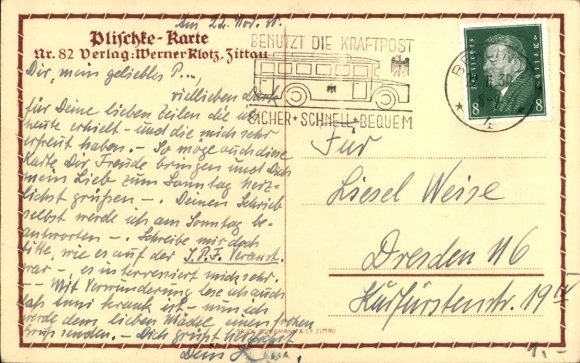 Am 22. Nov. 30.
Plischke-Karte
Nr. 82 Verlag: Werner Klotz, Zittau
BENUTZT DIE KRAFTPOST
SICHER + SCHNELL + BEQUEM
Deutsches Reich
8 8
Dir, mein geliebtes P...,
viellieben Dank
für Deine lieben Zeilen die ich
heute erhielt - und die mich sehr
erfreut haben. - So möge auch diese
Karte Dir Freude bringen und Dich
mein Lieb zum Sonntag herz-
lichst grüßen -. Deinen Schrieb
selbst werde ich am Sonntag be-
antworten -. Schreibe mir doch
bitte, wie es auf der Veranst.
war -, es interressiert mich sehr.
- Mit Verwunderung lese ich auch
daß krank ist - nun ich
werde dem lieben Mädle einen frohen
Gruß senden. - Dich grüßt
Dein
Für
Liesel Weise
Dresden N6
Kurfürstenstr. 19 IV
& CO. ZITTAU